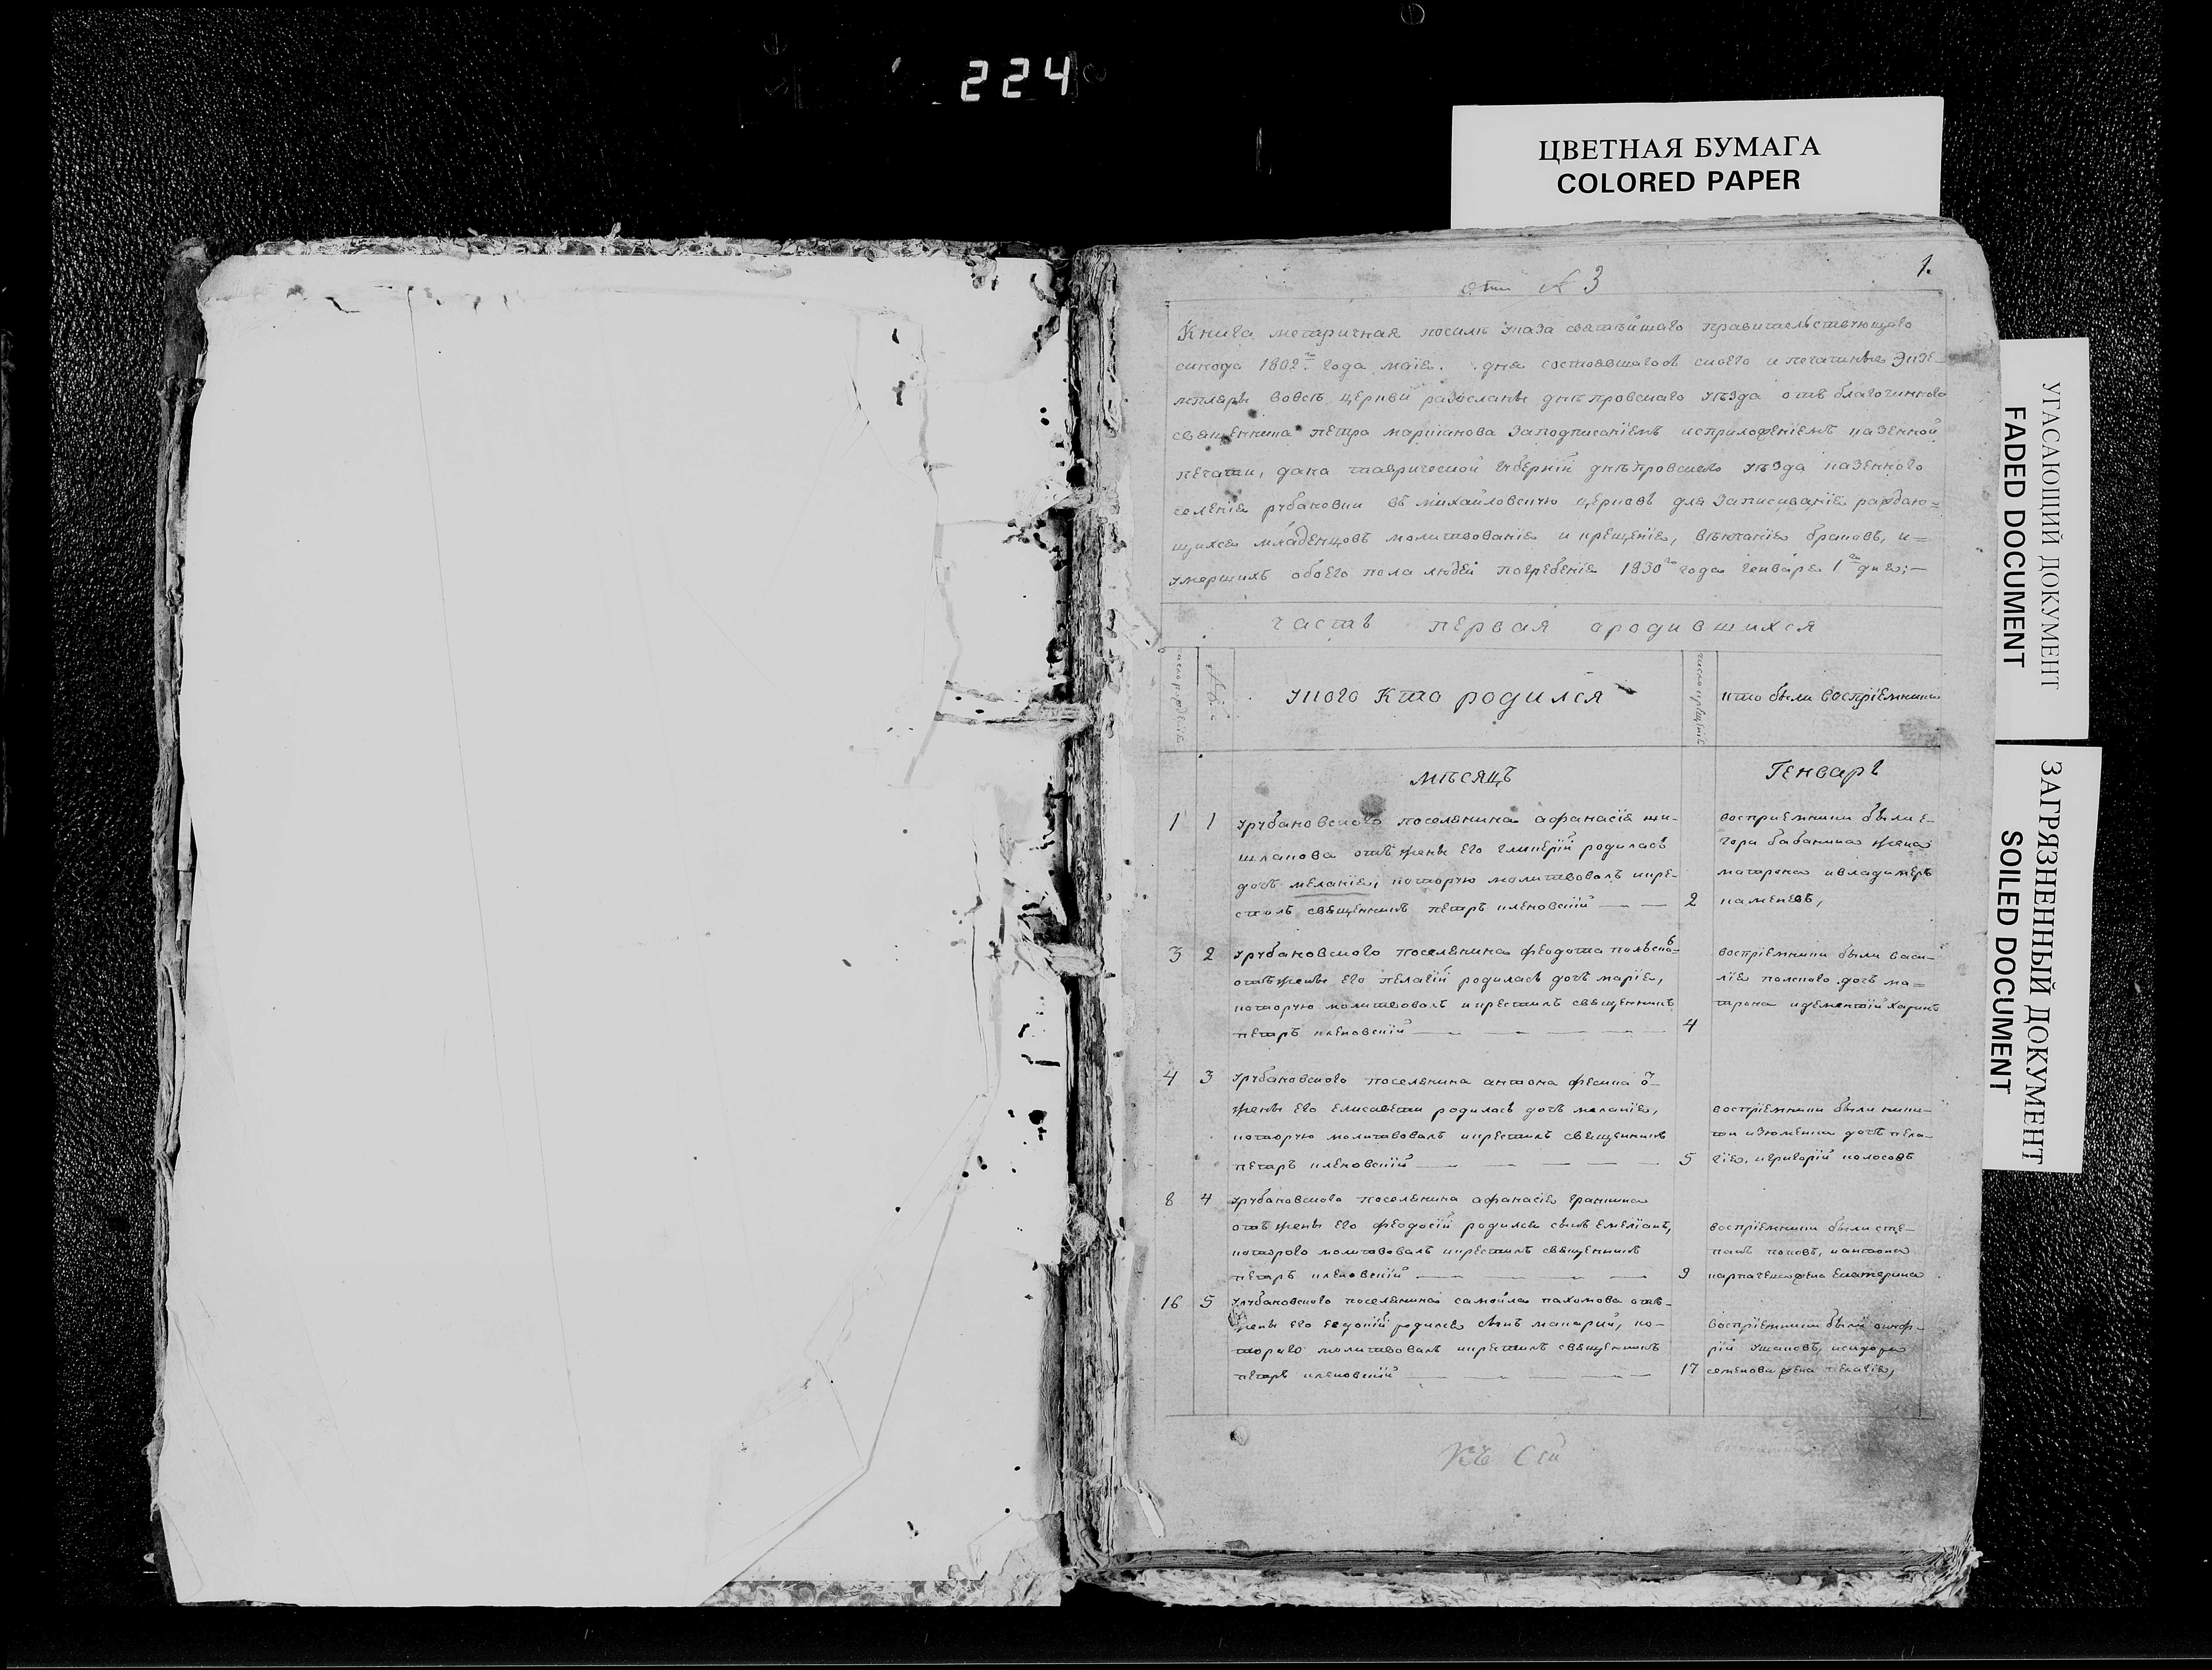 224
ЦВЕТНАЯ БУМАГА
COLORED PAPER
УГАСАЮЩИЙ ДОКУМЕНТ
FADED DOCUMENT
ЗАГРЯЗНЕННЫЙ ДОКУМЕНТ
SOILED DOCUMENT
1.
№ 3
Книга метричная посилѣ указа святѣйшаго правительствующаго
синода 1802го года маiя. дня состоявшагося сколо и печатные Экзе-
мпляры вовсѣ церкви разосланы днѣпровскаго уѣзда отъ благочиннаго
священника петра заподписанiемъ исприложенiемъ казенной
печати, дана таврической губернiй днѣпровскаго уѣзда казенного
селенiя рубановки въ михайловскую церковь для записыванiя раждаю=
щихся младенцовъ молитвованiя и крещенiя, вѣнчанiя браковъ, и=
умершихъ обоего пола людей погребенiя 1830го года генваря 1го дня;—
часть первая ородившихся
число рожденiя
число крещенiя
укого Кто родился
кто были воспрiемники
мѣсяцъ
Генварь
1 1 урубановского поселянина афанасiя
отъ жены его гликерiй родилась
дочь меланiя, которую молитвовалъ икре-
стилъ священникъ петръ кленовскiй — — 2
восприемники были е-
гора бабакина жена
матрона ивладимеръ
каменевъ,
3 2 урубановского поселянина феодота
отъ жены его пелагiй родилась дочь марiя,
которую молитвовалъ икрестилъ священникъ
петръ кленовскiй — — — — — 4
воспрiемники были васи-
лiя дочь ма=
трона идементiй харинъ
4 3 урубановского поселянина антона о-
жены его елисаветы родилась дочь меланiя,
которую молитвовалъ икрестилъ священникъ
петръ кленовскiй — — — — — 5
воспрiемники были ники-
ты дочь пела-
гiя, игригорiй колосовъ
8 4 урубановского поселянина афанасiя
отъ жены его феодосiй родился сынъ емелiанъ,
которого молитвовалъ икрестилъ священникъ
петръ кленовскiй — — — — — 9
воспрiемники были сте-
панъ поповъ, иантона
жена екатерина
16 5 урубановского поселянина самойла пахомова отъ-
жены его родился сынъ макарий, ко-
торого молитвовалъ икрестилъ священникъ
петръ кленовскiй — — — — — 17
воспрiемники были
рiй ушаковъ,
семенова жена пелагiя,
Къ Сей